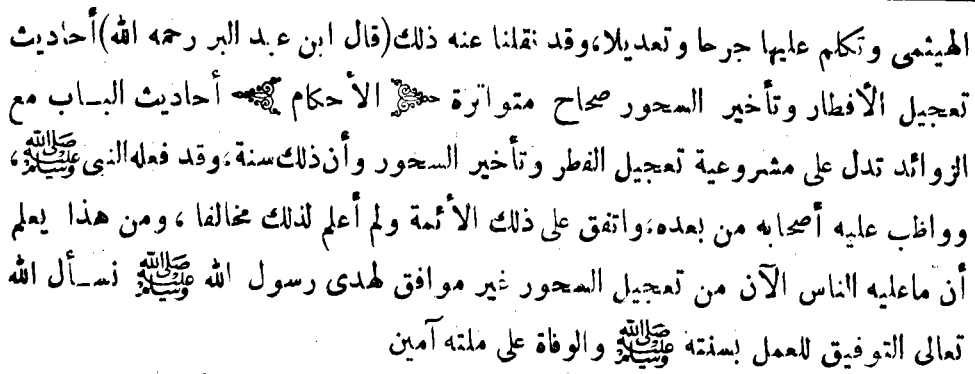 الهيثمى وتكلم عليها جرحا وتعديلا، وقد نقلنا عنه ذلك (قال ابن عبد البر رحمه الله) أحاديث
تعجيل الأفطار وتأخير السحور صحاح متواترة ﴿ الأحكام ﴾ أحاديث البـاب مع
الزوائد تدل على مشروعية تعجيل الفطر وتأخير السحور وأن ذلك سنة، وقد فعله النبى ﷺ،
وواظب عليه أصحابه من بعده، واتفق على ذلك الأئمة ولم أعلم لذلك مخالفا، ومن هذا يعلم
أن ماعليه الناس الآن من تعجيل السحور غير موافق لهدى رسول الله ﷺ نسـأل الله
تعالى التوفيق للعمل بسنته ﷺ والوفاة على ملته آمين